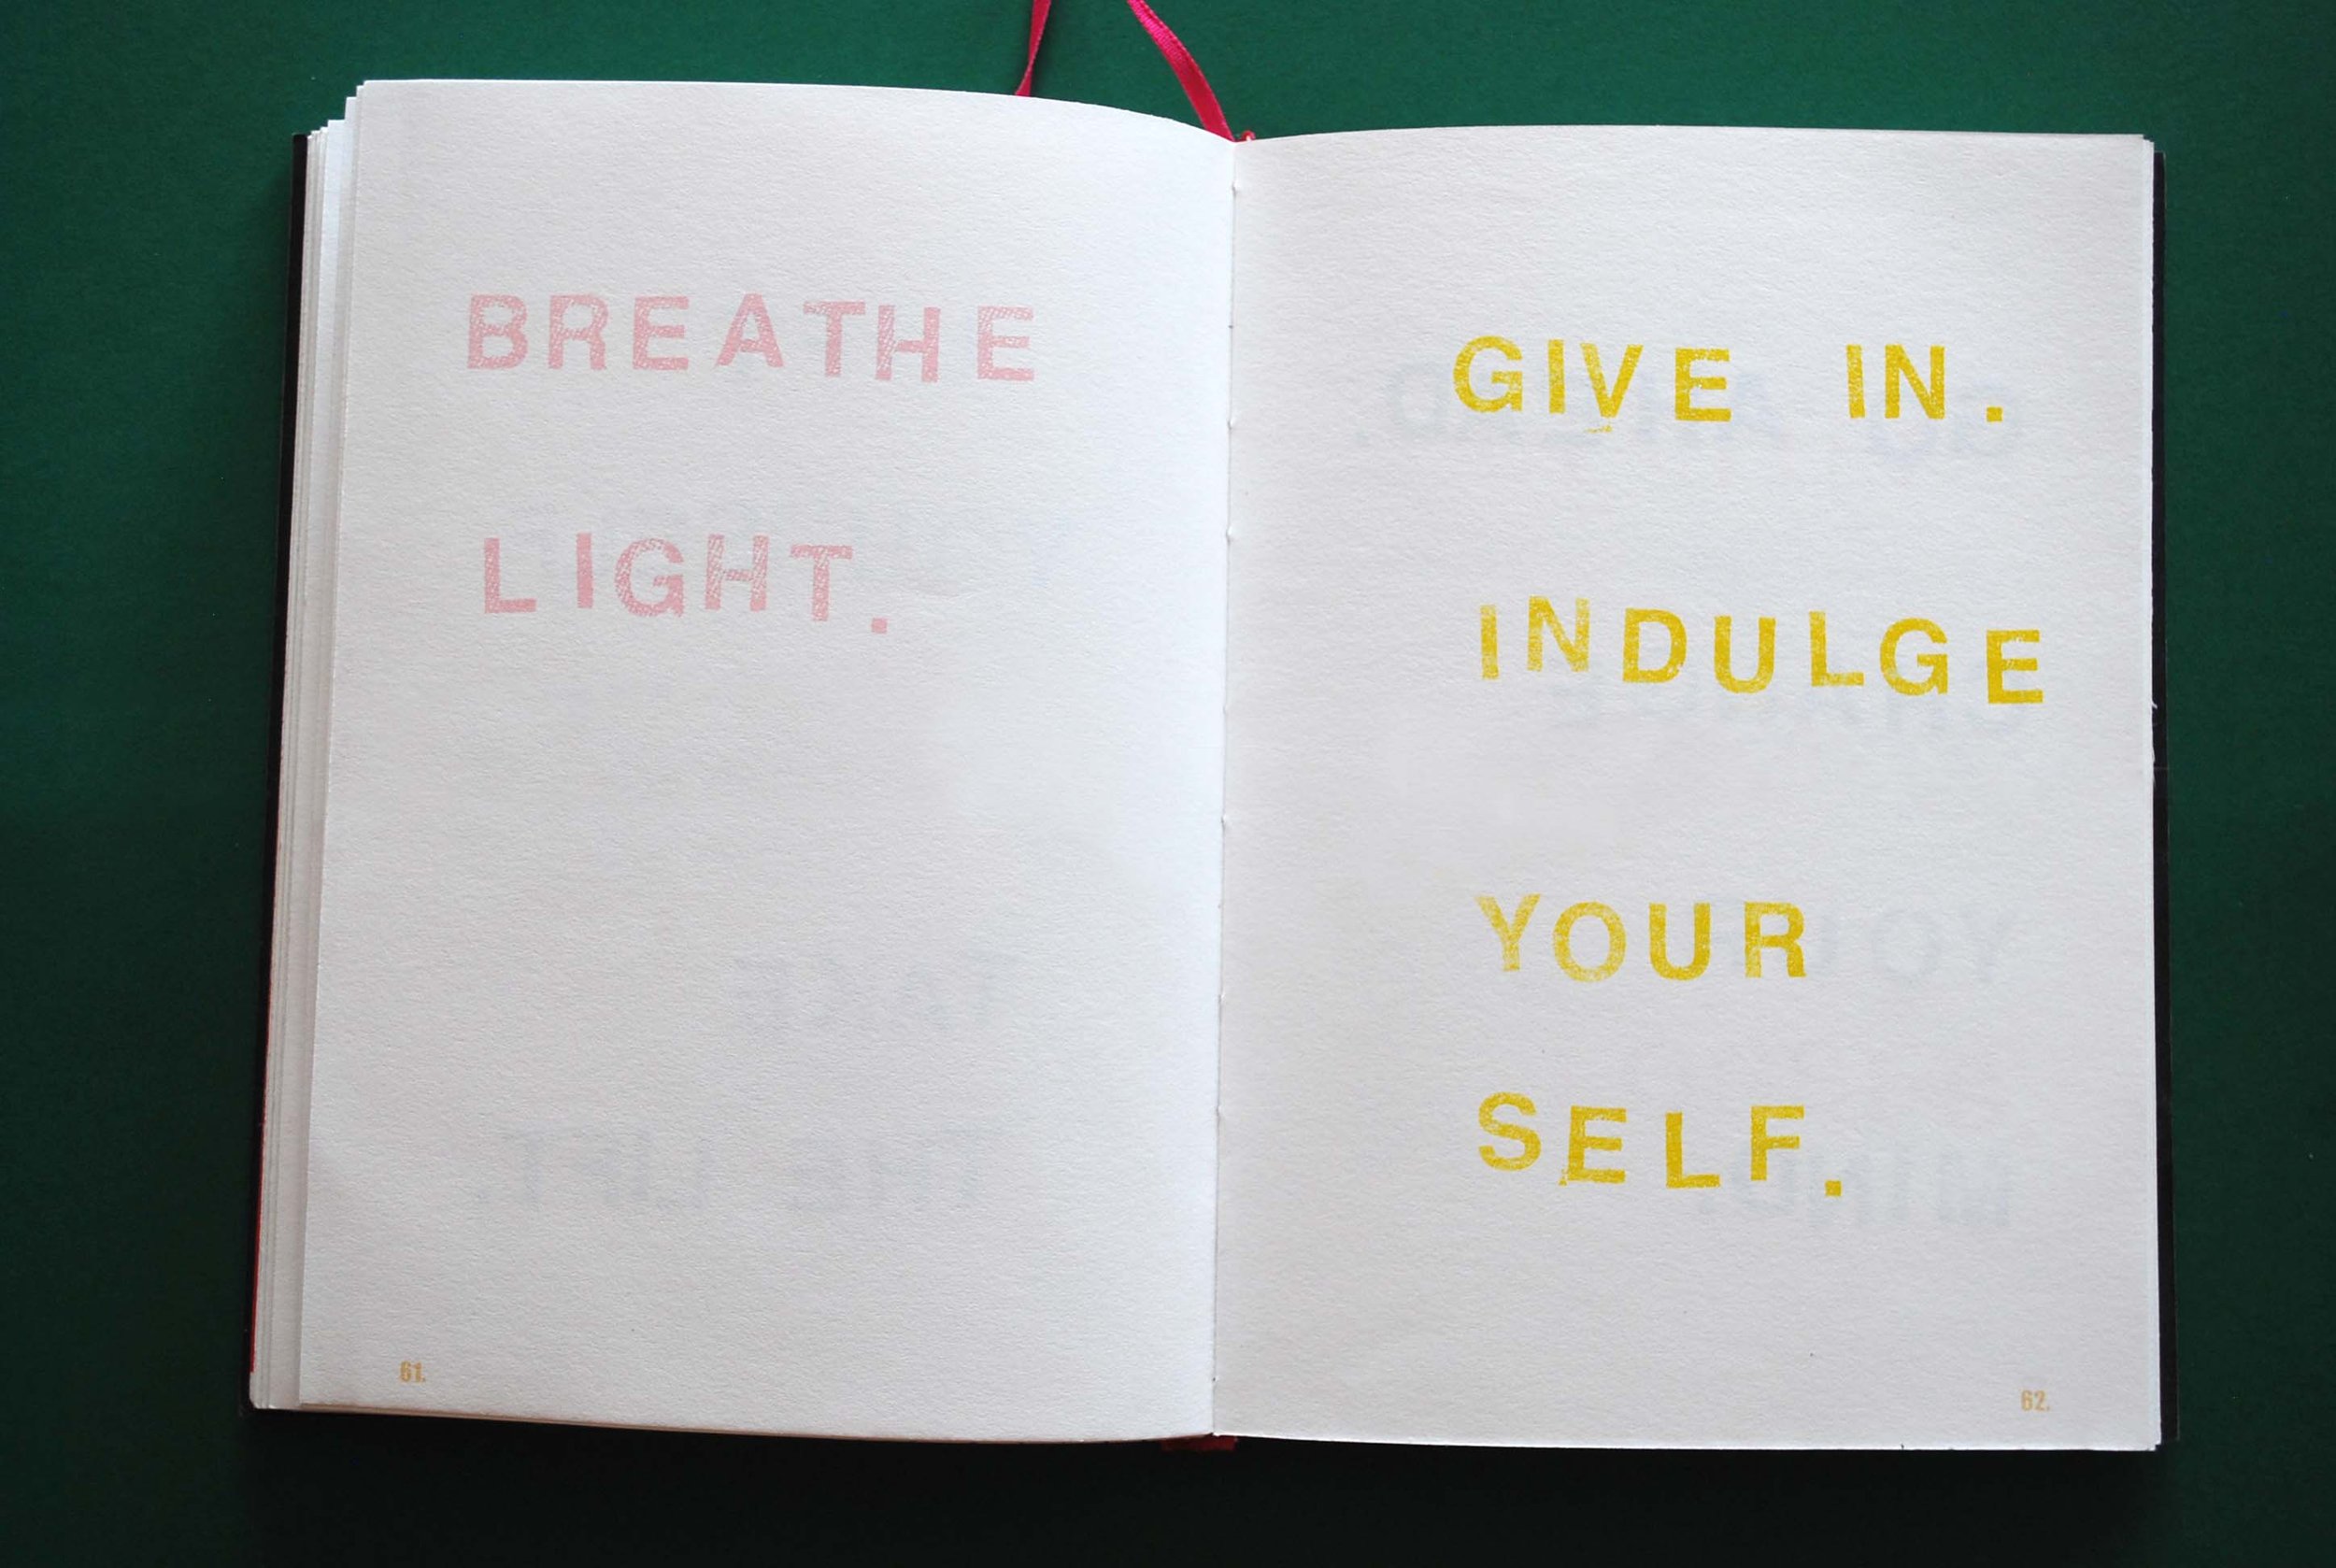 BREATHE
LIGHT.
61.
GIVE IN.
INDULGE
YOUR
SELF.
62.